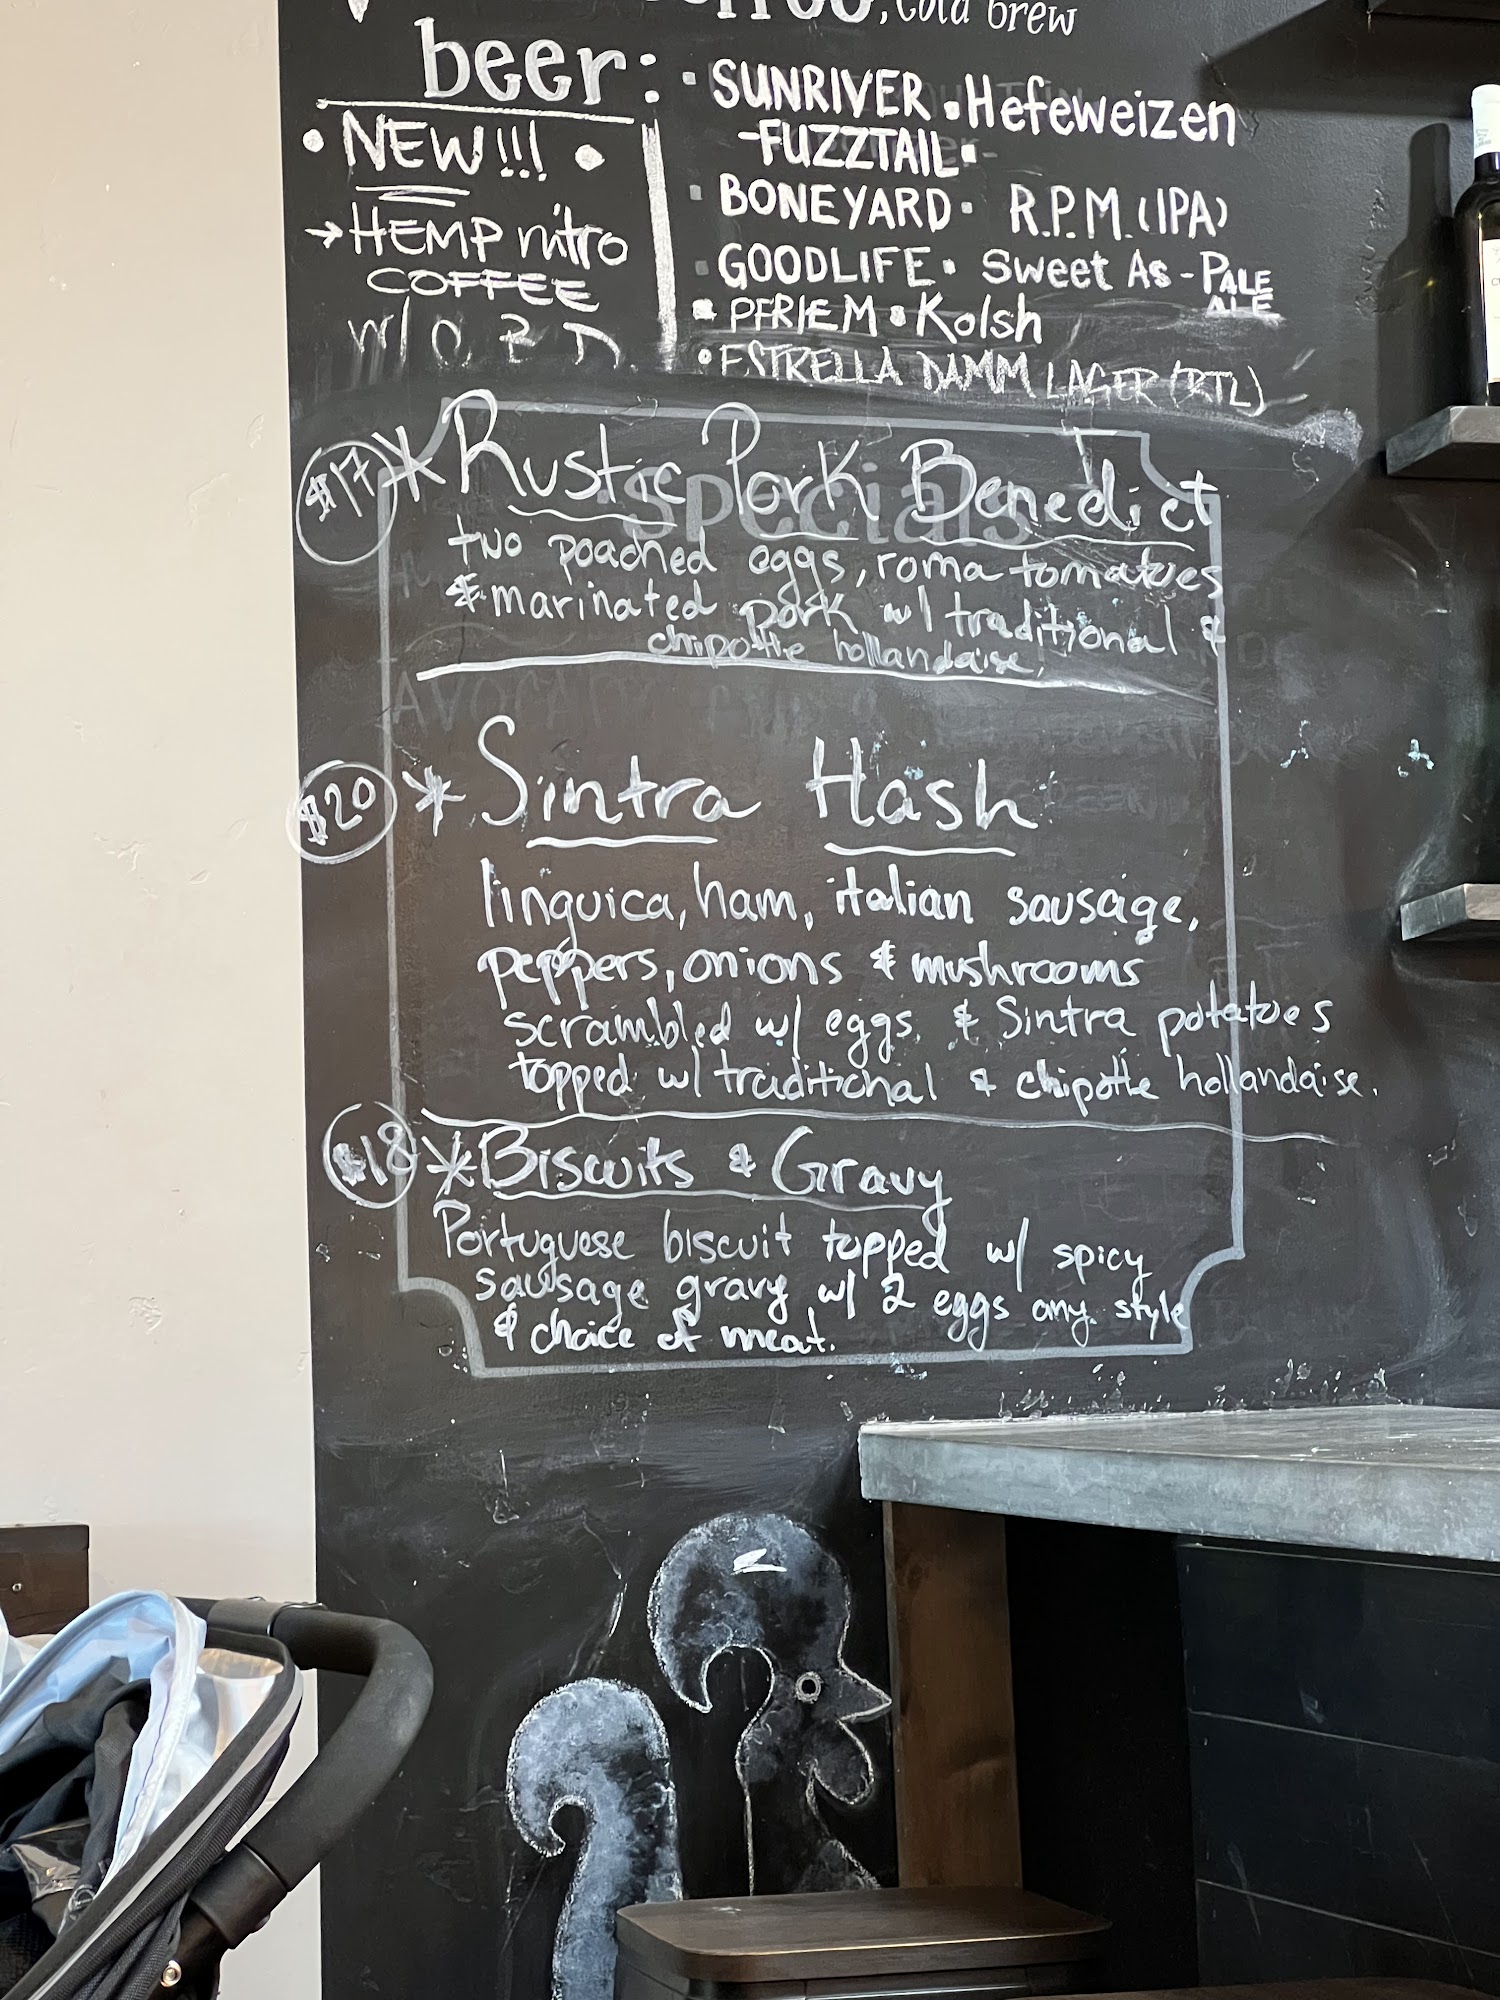 cold brew
beer:
• NEW!!! •
→ HEMP nitro
COFFEE
W/ C.B.D.
• SUNRIVER • Hefeweizen
-FUZZTAIL •
• BONEYARD • R.P.M. (IPA)
• GOODLIFE • Sweet As - PALE
ALE
• PFRIEM • Kolsh
• ESTRELLA DAMM LAGER (BTL)
specials
$17 * Rustic Pork Benedict
two poached eggs, roma tomatoes
& marinated pork w/ traditional &
chipotle hollandaise.
$20 * Sintra Hash
linguica, ham, italian sausage,
peppers, onions & mushrooms
scrambled w/ eggs. & Sintra potatoes
topped w/ traditional & chipotle hollandaise.
$18 * Biscuits & Gravy
Portuguese biscuit topped w/ spicy
sausage gravy w/ 2 eggs any style
& choice of meat.